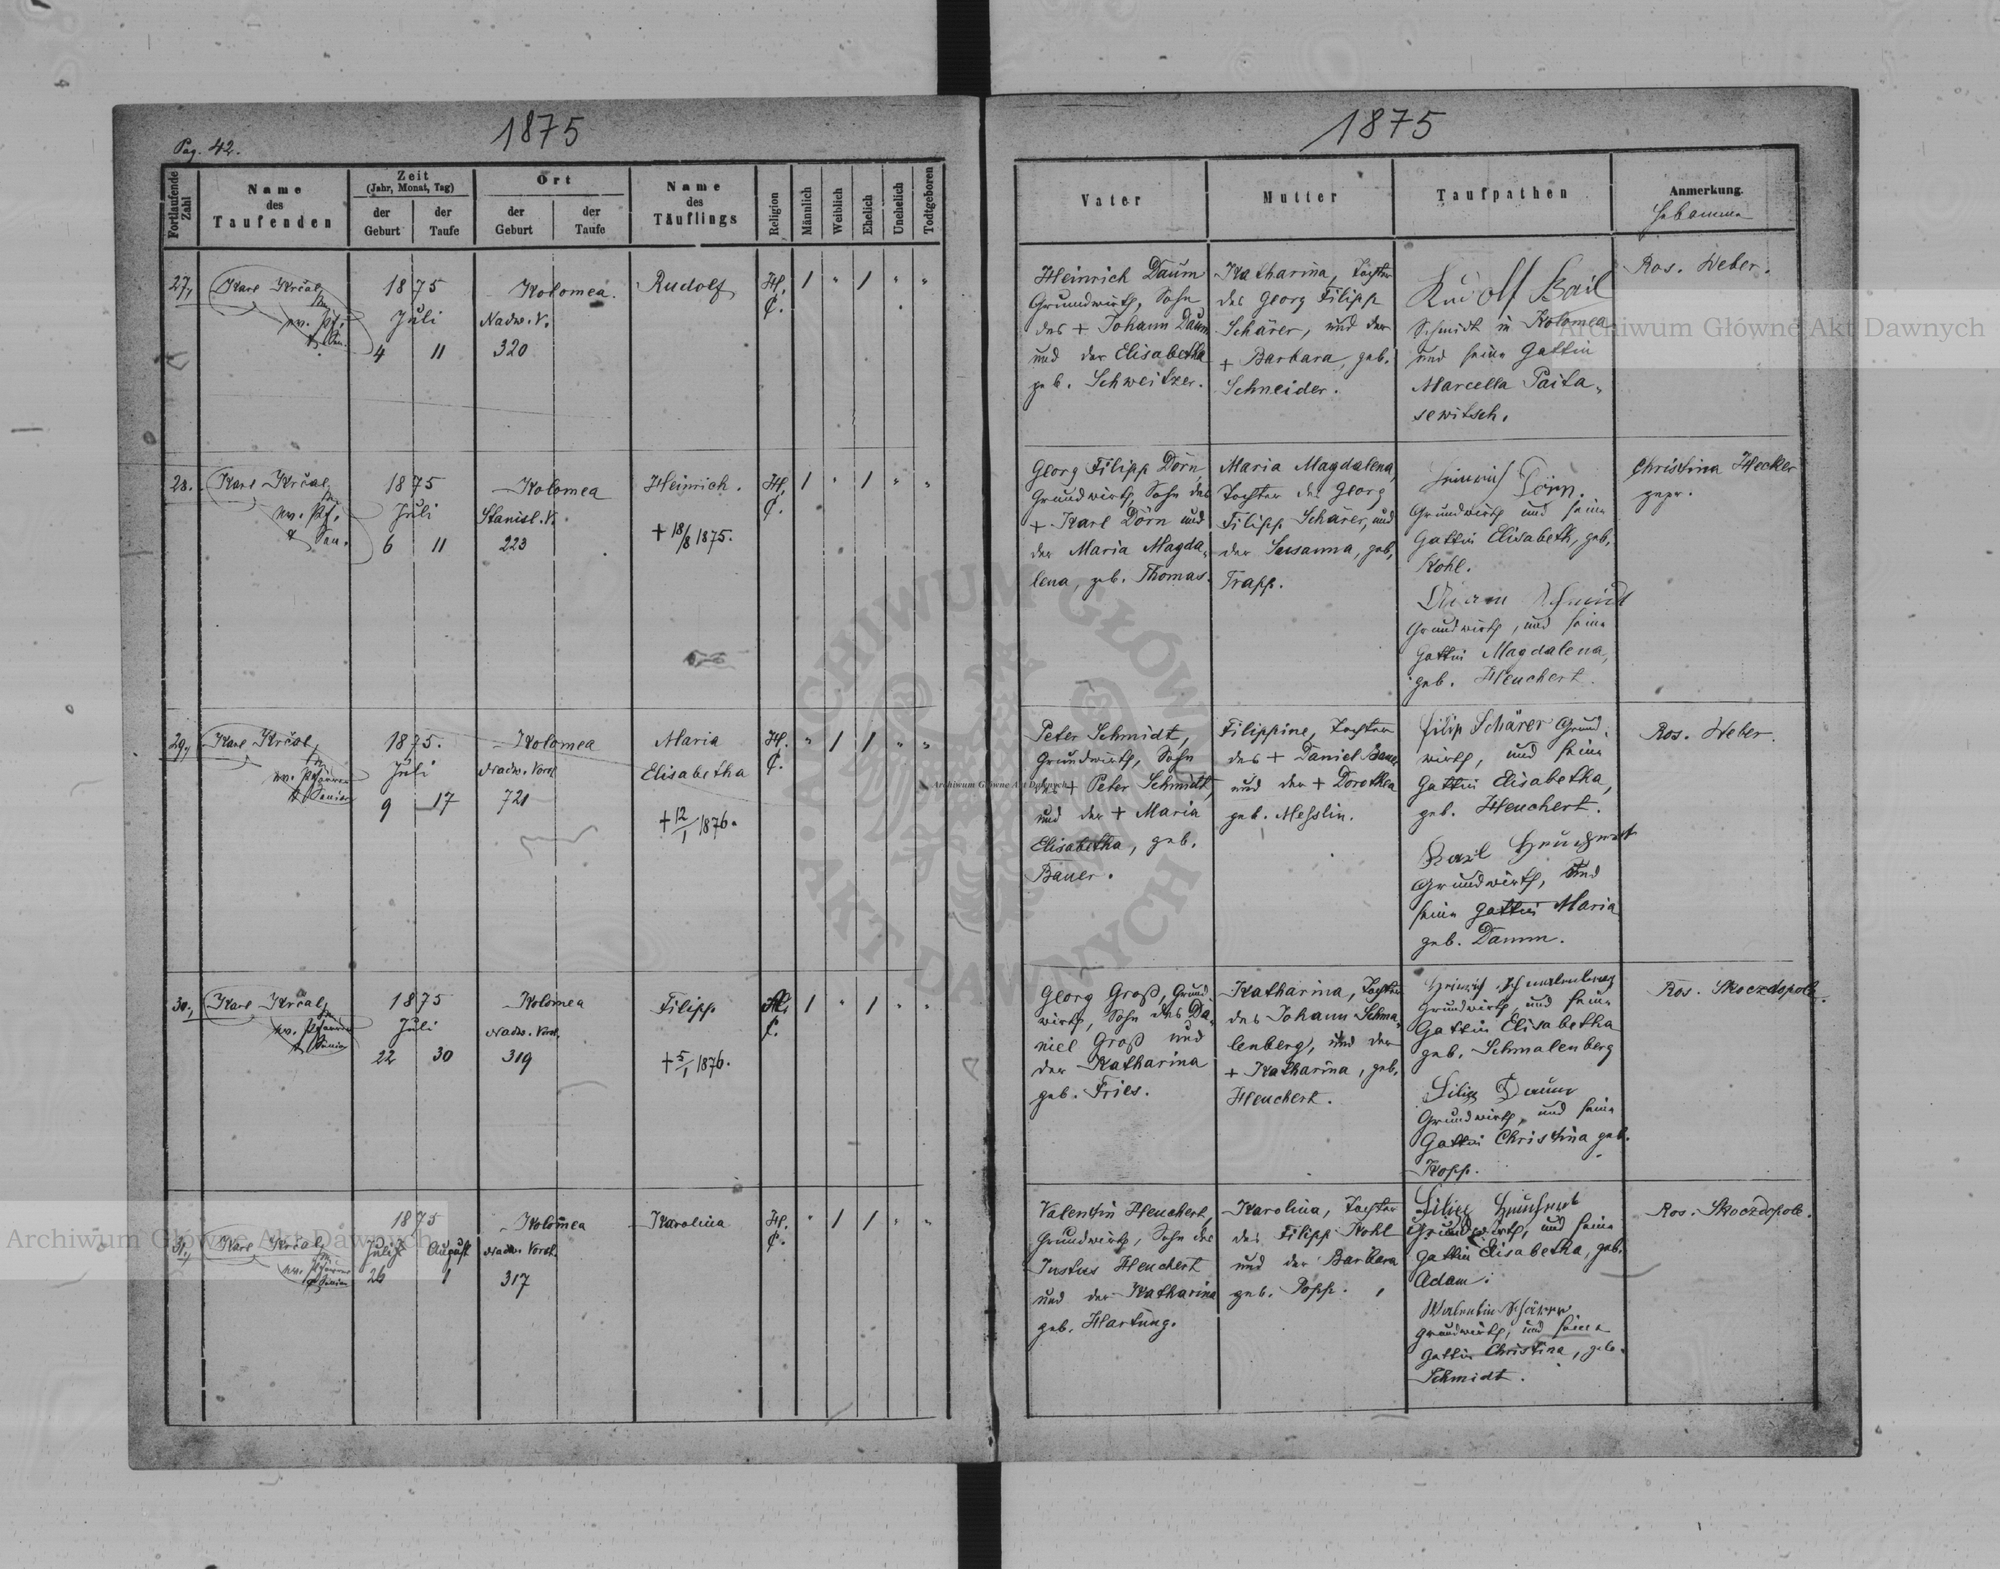 Pag. 42.
1875
Fortlaufende Zahl
Name
des
Taufenden
Zeit
(Jahr, Monat, Tag)
der Geburt
der Taufe
Ort
der Geburt
der Taufe
Name
des
Täuflings
Religion
Männlich
Weiblich
Ehelich
Unehelich
Todtgeboren
27,
Karl Krčal,
ev. Pf.
1875
Juli
4 11
Kolomea.
Nadw. V.
320
Rudolf
H. C.
1 " 1 " "
28.
Karl Krčal,
ev. Pf.
& Sen.
1875
Juli
6 11
Kolomea
Stanisl. V.
223
Heinrich.
+ 18/8 1875.
H. C.
1 " 1 " "
29,
Karl Krčal,
ev. Pfarrer
& Senior
1875.
Juli
9 17
Kolomea
Nadw. Vorst.
721
Maria
Elisabetha
+ 12/1 1876.
H. C.
" 1 1 " "
30,
Karl Krčal,
ev. Pfarrer
& Senior
1875
Juli
22 30
Kolomea
Nadw. Vorst.
319
Filipp
+ 5/1 1876.
H. C.
1 " 1 " "
31,
Karl Krčal,
ev. Pfarrer
& Senior
1875
Juli August
26 1
Kolomea
Nadw. Vorst.
317
Karolina
H. C.
" 1 1 " "
1875
Vater
Mutter
Taufpathen
Anmerkung.
Hebamme
Heinrich Daum
Grundwirth, Sohn
des + Johann Daum
und der Elisabetha
geb. Schweitzer.
Katharina, Tochter
des Georg Filipp
Schärer, und der
+ Barbara, geb.
Schneider.
Rudolf Bail
Schmidt in Kolomea
und seine Gattin
Marcella Paita-
sewitsch.
Ros. Weber.
Georg Filipp Dörn,
Grundwirth, Sohn des
+ Karl Dörn und
der Maria Magda-
lena, geb. Thomas.
Maria Magdalena,
Tochter des Georg
Filipp Schärer, und
der Susanna, geb.
Trapp.
Heinrich Dörn.
Grundwirth und seine
Gattin Elisabeth, geb.
Kohl.
Adam Schmidt
Grundwirth, und seine
Gattin Magdalena,
geb. Heuchert.
Christina Hecker
gepr.
Peter Schmidt,
Grundwirth, Sohn
des + Peter Schmidt,
und der + Maria
Elisabetha, geb.
Bauer.
Filippine, Tochter
des + Daniel Bauer
und der + Dorothea
geb. Messlin.
Filip Schärer Grund-
wirth, und seine
Gattin Elisabetha,
geb. Heuchert.
Karl Heuchert
Grundwirth, und
seine Gattin Maria
geb. Damm.
Ros. Weber.
Georg Groß, Grund-
wirth, Sohn des Da-
niel Groß und
der Katharina
geb. Fries.
Katharina, Tochter
des Johann Schma-
lenberg, und der
+ Katharina, geb.
Heuchert.
Heinrich Schmalenberg
Grundwirth und seine
Gattin Elisabetha
geb. Schmalenberg
Filipp Daum
Grundwirth, und seine
Gattin Christina geb.
Kopp.
Ros. Skoczdopole.
Valentin Heuchert,
Grundwirth, Sohn des
Justus Heuchert
und der Katharina
geb. Hartung.
Karolina, Tochter
des Filipp Kohl
und der Barbara
geb. Popp.
Filipp Heuchert
Grundwirth, und seine
Gattin Elisabetha, geb.
Adam.
Walentin Schärer
Grundwirth, und seine
Gattin Christina, geb.
Schmidt.
Ros. Skoczdopole.
Archiwum Główne Akt Dawnych
Archiwum Główne Akt Dawnych
Archiwum Główne Akt Dawnych
ARCHIWUM GŁÓWNE AKT DAWNYCH